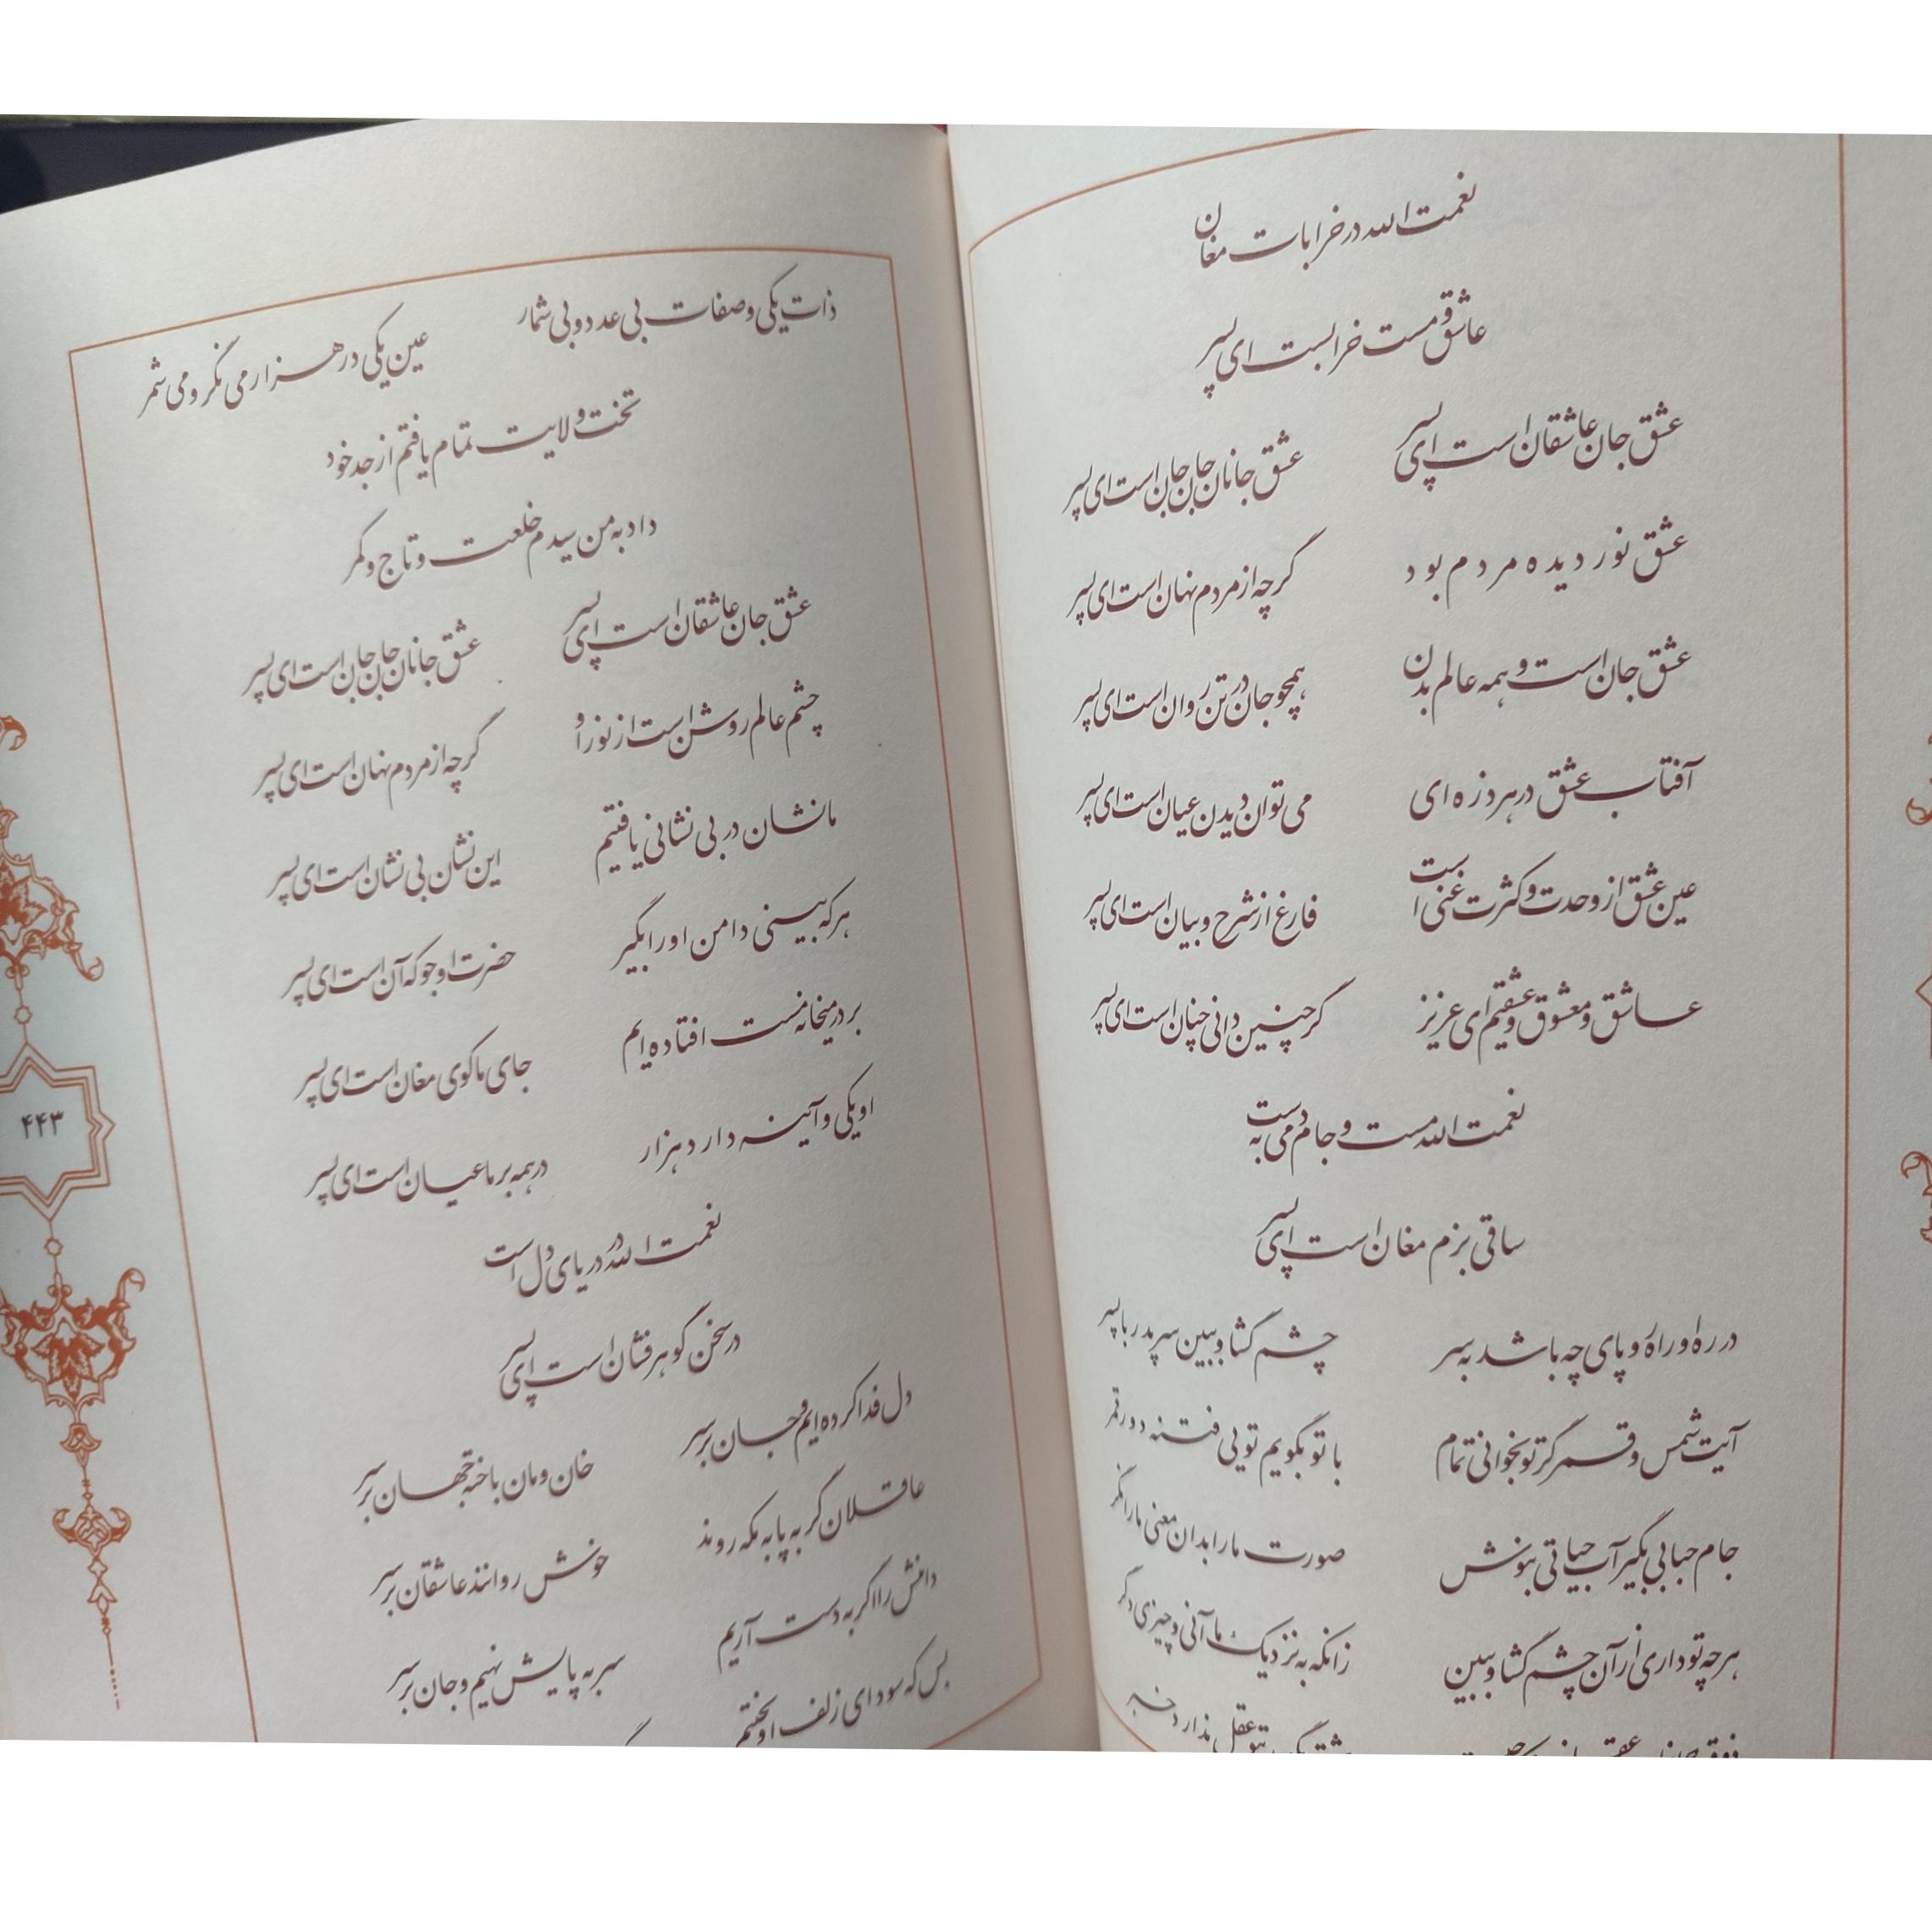 نعمت الله در خرابات مغان
عاشق و مست خرابست ای پسر
عشق جان عاشقان است ای پسر عشق جانان جان جان است ای پسر
عشق نور دیده مردم بود گرچه از مردم نهان است ای پسر
عشق جان است و همه عالم بدن همچو جان در تن روان است ای پسر
آفتاب عشق در هر ذره ای می توان دیدن عیان است ای پسر
عین عشق از وحدت و کثرت غنی است فارغ از شرح و بیان است ای پسر
عاشق و معشوق و عشقیم ای عزیز گر چنین دانی چنان است ای پسر
نعمت الله مست و جام می به دست
ساقی بزم مغان است ای پسر
در ره او راه رو پای چه باشد به سر چشم گشا و ببین سر پدر با پسر
آیت شمس و قمر گر تو بخوانی تمام با تو بگویم تویی فتنه دور قمر
جام حبابی بگیر آب حیاتی بنوش صورت ما را بدان معنی ما را نگر
هر چه تو داری از آن چشم گشا و ببین زانکه به نزدیک ما آنی و چیزی دگر
عقل ندارد خبر
ذات یکی و صفات بی عدد و بی شمار عین یکی در هزار می نگر و می شمر
تخت ولایت تمام یافتم از جد خود
داد به من سیدم خلعت و تاج و کمر
عشق جان عاشقان است ای پسر عشق جانان جان جان است ای پسر
چشم عالم روشن است از نور او گرچه از مردم نهان است ای پسر
ما نشان در بی نشانی یافتیم این نشان بی نشان است ای پسر
هر که بینی دامن او را بگیر حضرت او جو که آن است ای پسر
بر در میخانه مست افتاده ایم جای ما کوی مغان است ای پسر
او یکی و آینه دارد هزار در همه بر ما عیان است ای پسر
نعمت الله در دریای دل است
در سخن گوهرفشان است ای پسر
دل فدا کرده ایم و جان بر سر خان و مان باخته جهان بر سر
عاقلان گر به پا به مکه روند خوش روانند عاشقان بر سر
دامنش را اگر به دست آریم سر به پایش نهیم و جان بر سر
بس که سودای زلف او پختیم
۴۴۳